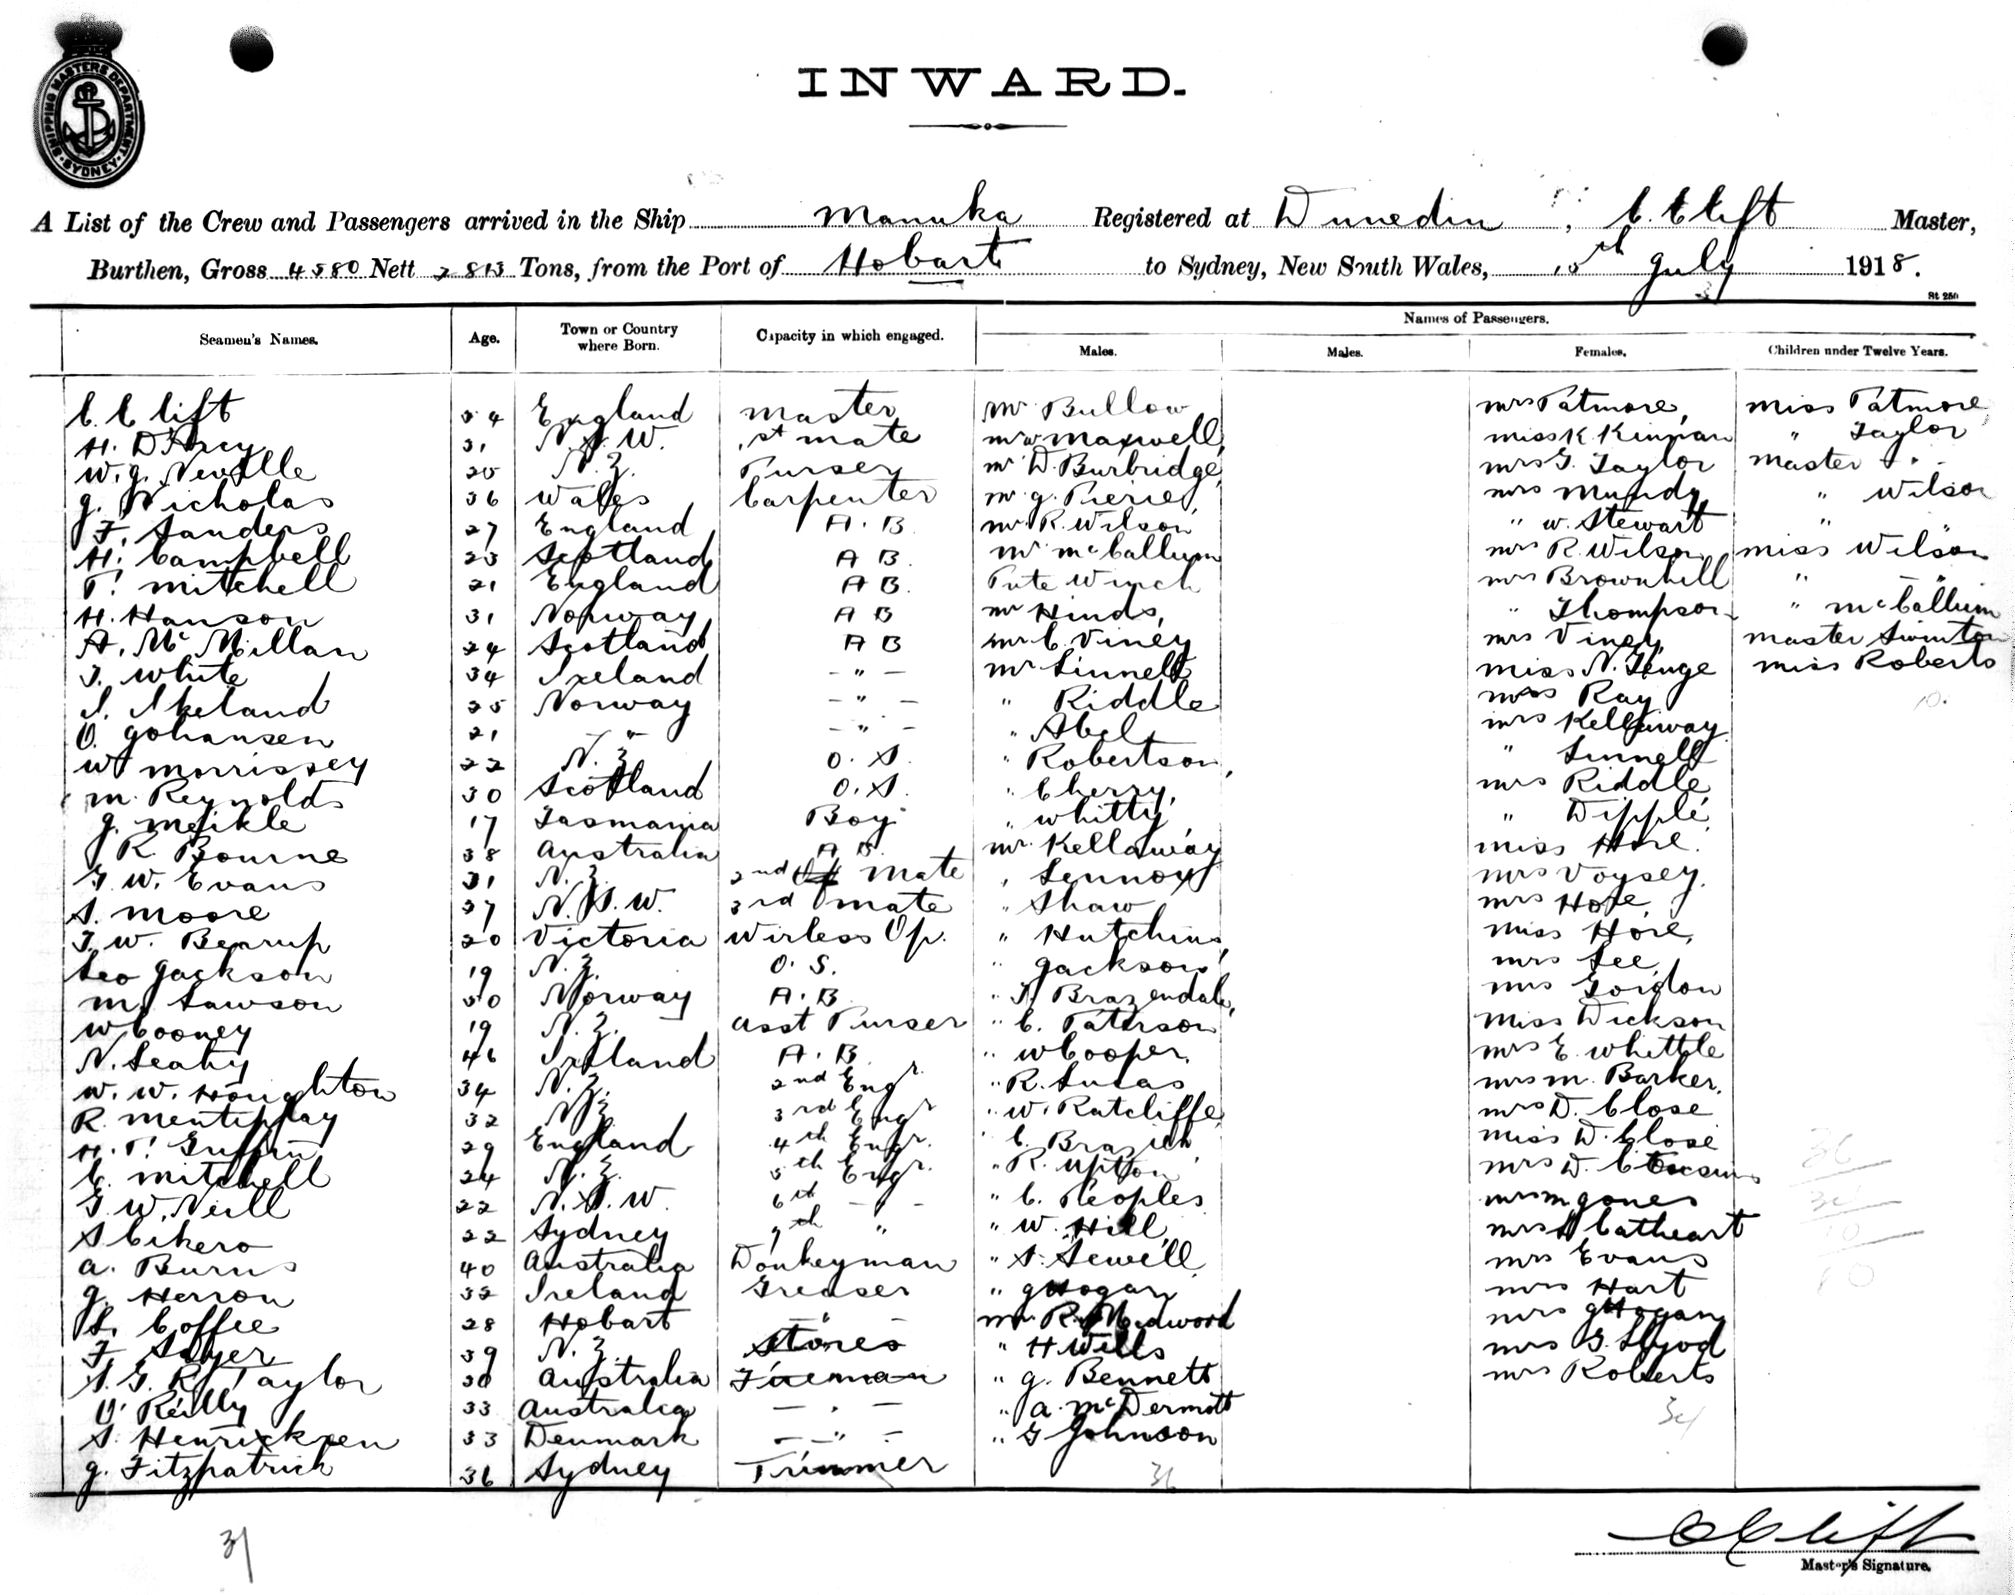 SHIPPING MASTERS DEPARTMENT
SYDNEY
INWARD.
A List of the Crew and Passengers arrived in the Ship Manuka Registered at Dunedin, C. Clift Master,
Burthen, Gross 4580 Nett 2813 Tons, from the Port of Hobart to Sydney, New South Wales, 10th July 1918.
St 250
Names of Passengers.
Seamen's Names. Age. Town or Country where Born. Capacity in which engaged. Males. Males. Females. Children under Twelve Years.
C Clift 54 England Master Mr Bullow Mrs Patmore, Miss Patmore
H. D'Arcy 31 N.S.W. 1st mate Mr W Maxwell, Miss K. Kinnan " Taylor
W. J. Neville 25 N.Z. Purser Mr D. Burbridge, Mrs G. Taylor Master "
J. Nicholas 36 Wales Carpenter Mr J. Pierie, Mrs Mundy, " Wilson
F. Sanders 27 England A.B. Mr R. Wilson " W. Stewart "
H. Campbell 23 Scotland A B. Mr McCallum Mrs R. Wilson Miss Wilson
T. Mitchell 21 England A B. Pute Winch Mrs Brownhill " "
H. Hanson 31 Norway A B Mr Hinds, " Thompson " McCallum
A. McMillan 24 Scotland A B Mr C. Viney Mrs Viney, Master Swinton
J. White 34 Ireland - " - Mr Linnell Miss N. Genge Miss Roberts
S. Skeland 25 Norway - " - " Riddle Miss Ray 10.
O. Johansen 21 - " - " - " Abel Mrs Kellaway
W Morrissey 22 N.Z. O.S. " Robertson, " Linnell
M. Reynolds 30 Scotland O.S. " Cherry, Mrs Riddle
J. Meikle 17 Tasmania Boy " Whitty " Dipple,
R. Bourne 38 Australia A B. Mr. Kellaway Miss Hore.
G. W. Evans 31 N.Z. 2nd Mate " Lennox Mrs Voysey.
S. Moore 27 N.S.W. 3rd mate " Shaw Mrs Hore,
J. W. Bearup 20 Victoria Wirless Op. " Hutchins, Miss Hore,
Leo Jackson 19 N.Z. O.S. " Jackson, Mrs Lee,
M. Lawson 50 Norway A.B. " J. Brazendale, Mrs Gordon
W Cooney 19 N.Z. Asst Purser " C. Paterson Miss Dickson
N. Leahy 46 Ireland A.B. " W Cooper, Mrs E. Whittle
W. W. Houghton 34 N.Z. 2nd Engr. " R. Lucas Mrs M. Barker,
R. Mentiplay 32 N.Z. 3rd Engr " W. Ratcliffe, Mrs D. Close
H. T. Griffin 29 England 4th Engr. " C. Miss D. Close
C. Mitchell 24 N.Z. 5th Engr. " R. Upton Mrs D.
G. W. Neill 22 N.S.W. 6th - - " C. Peoples Mrs M Jones
S Cikero 22 Sydney 7th " " W. Hill, Mrs Cathcart
A. Burns 40 Australia Donkeyman " S. Sewell Mrs Evans
J. Herron 32 Ireland Greaser " J Hogan Mrs Hart
L. Coffee 28 Hobart " Mr. R. Medword Mrs J Hogan
F. Sayer 39 N.Z. Stores " H Wells Mrs G. Lloyd
S. G. R. Taylor 30 Australia Fireman " J. Bennett Mrs Roberts
O'Reilly 33 Australia - " - " A. McDermott 34
S. Henricksen 33 Denmark - " - " G Johnson
J. Fitzpatrick 36 Sydney Trimmer 36
36
34
10
80
C Clift
Master's Signature.